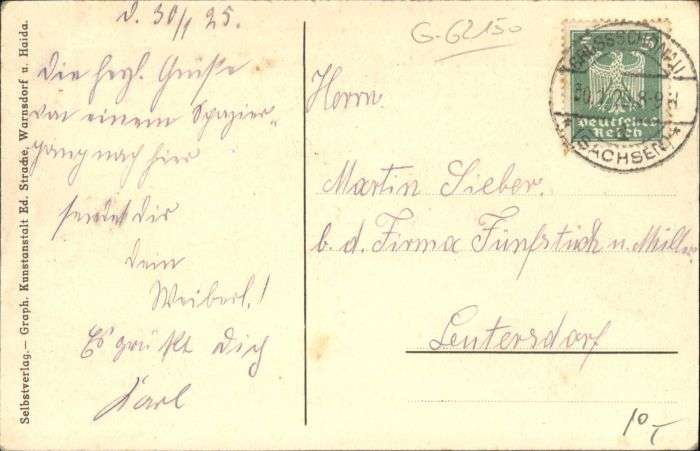 d. 30/1 25.
Die herzl. Grüße
von einem Spazier-
gang nach hier
sendet Dir
Dein
Weiberl!
Es grüßt Dich
Karl
G-62150
Herrn
Martin Sieber.
b. d. Firma Fünfstück u. Müller
Leutersdorf
10,-
5
Deutsches
Reich
GROSSSCHÖNAU
30.1.25.8-9 N
* (SACHSEN) *
Selbstverlag.— Graph. Kunstanstalt Ed. Strache, Warnsdorf u. Haida.